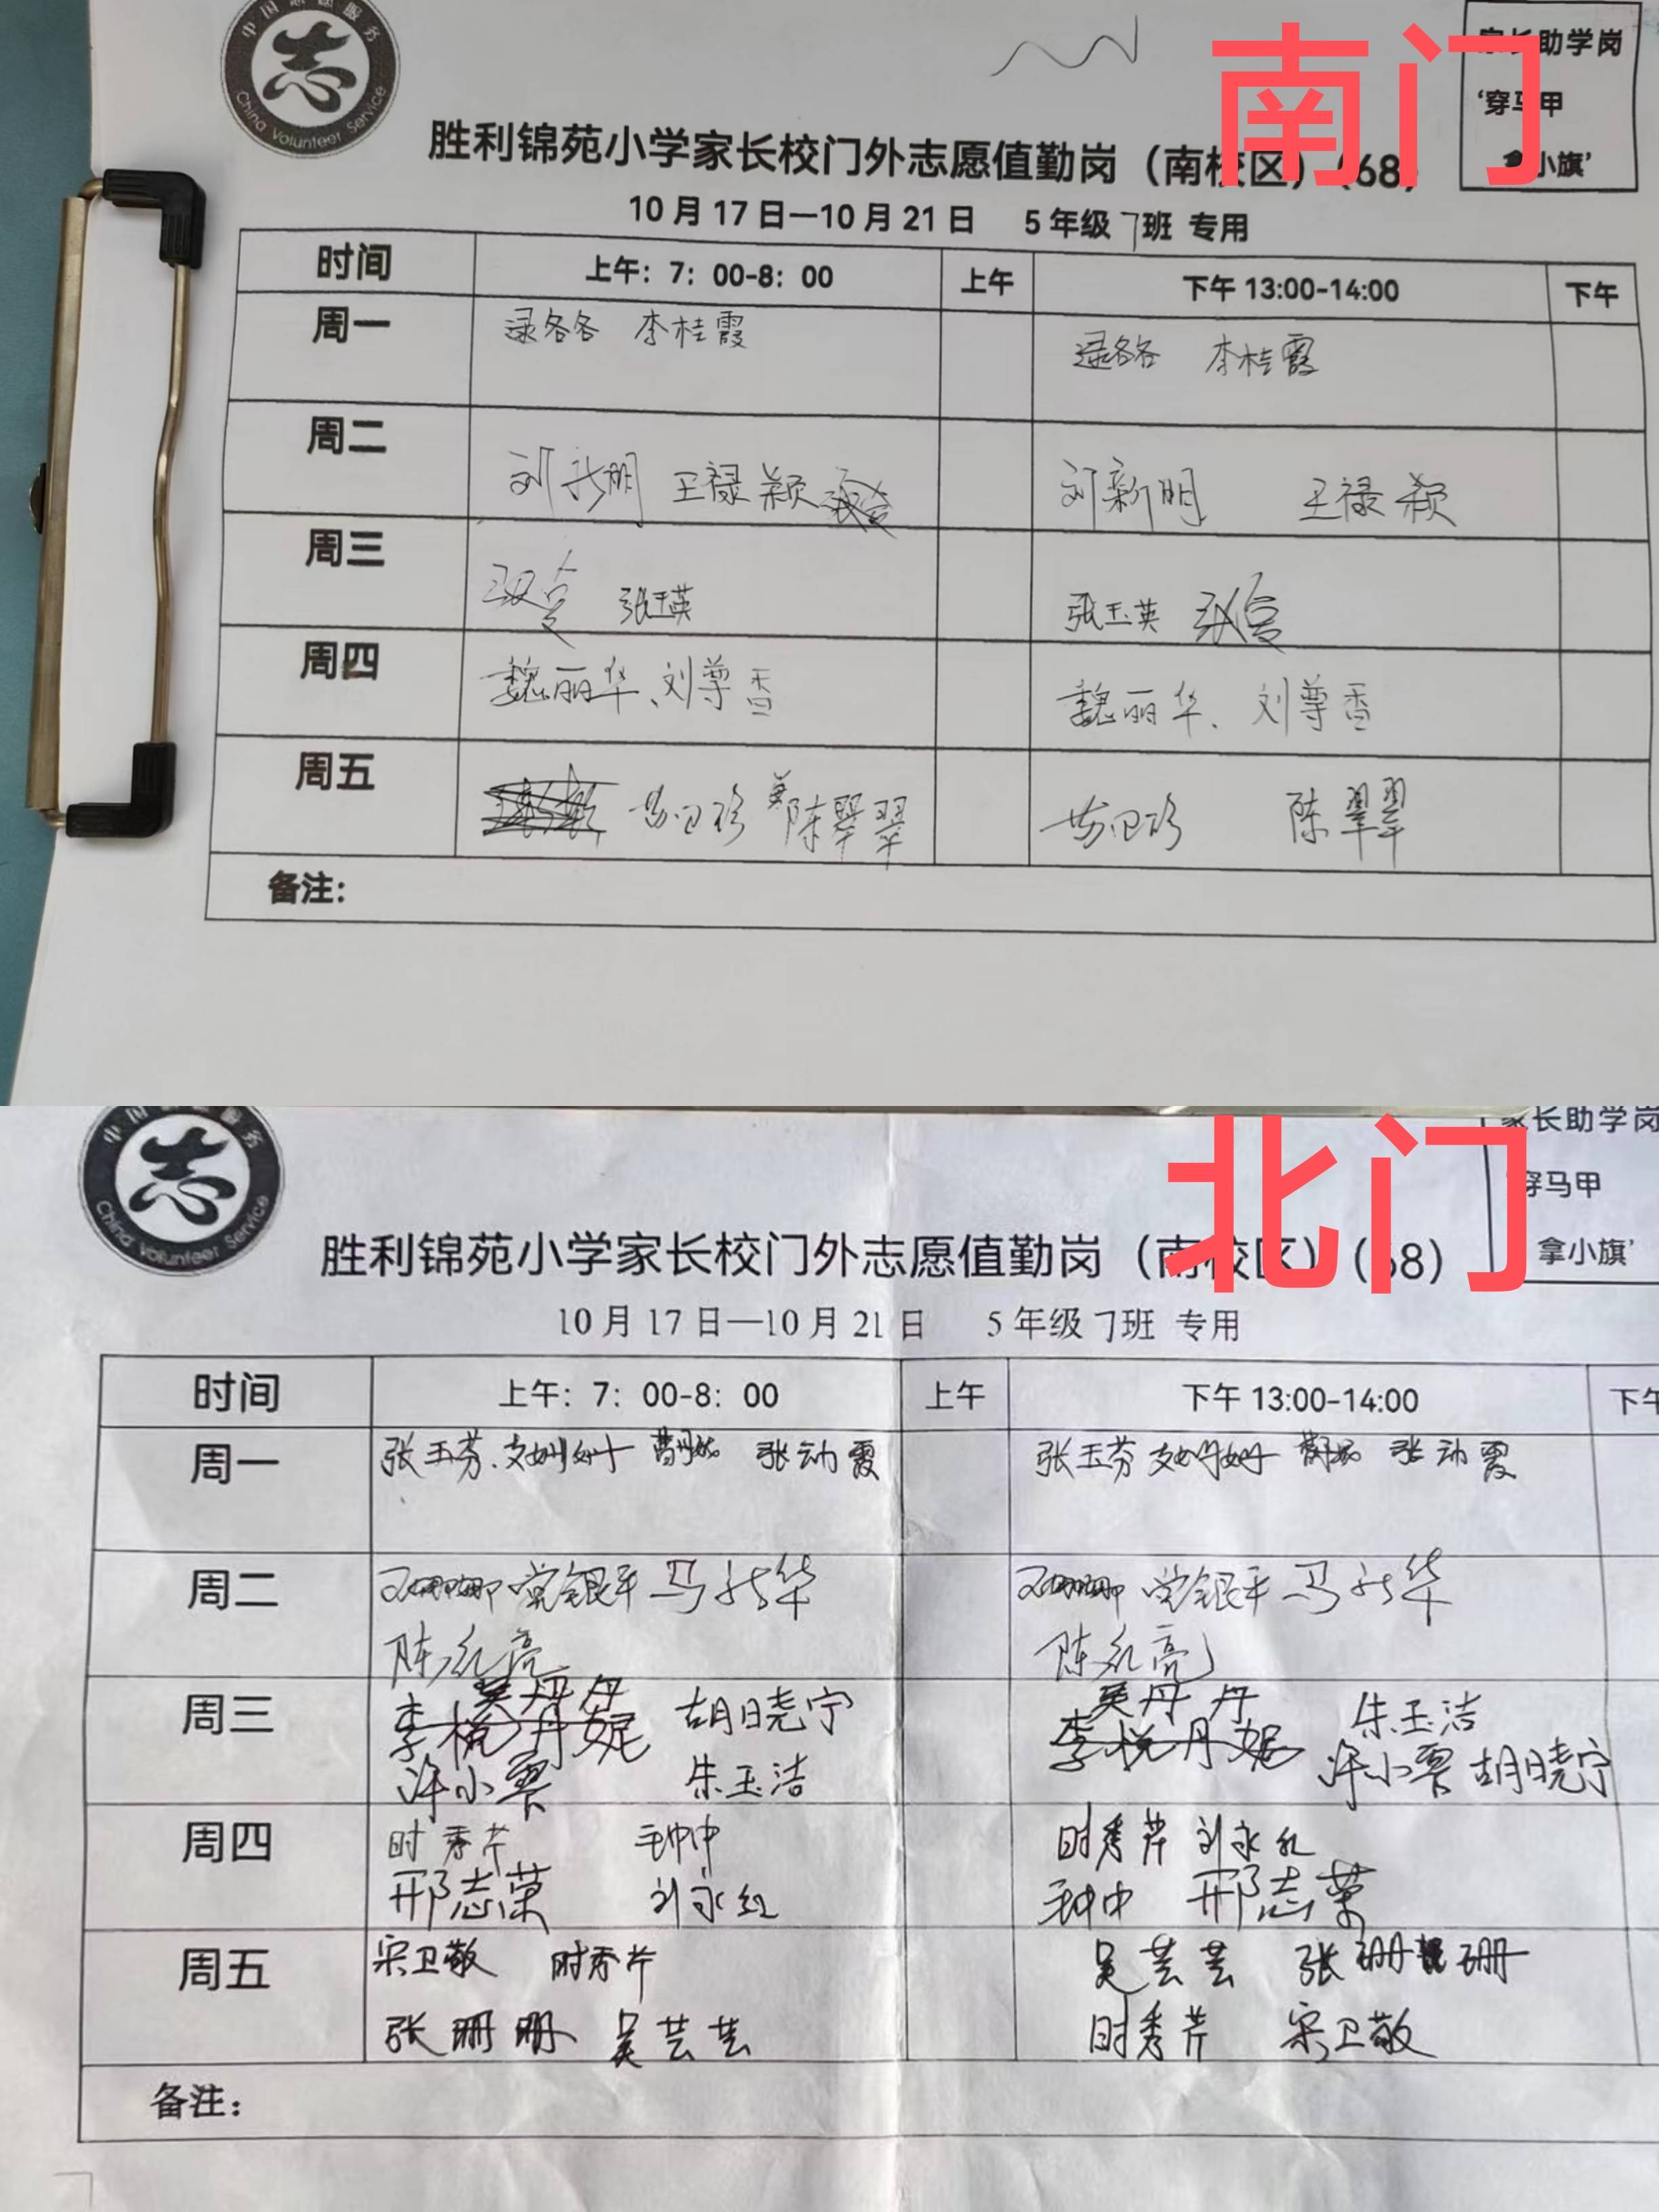 中国志愿服务
China Volunteer Service
南门
家长助学岗
‘穿马甲
拿小旗’
胜利锦苑小学家长校门外志愿值勤岗（南校区）（68）
10月17日—10月21日 5年级7班 专用
时间 上午：7：00-8：00 上午 下午13:00-14:00 下午
周一 逯各各 李桂霞 逯各各 李桂霞
周二 刘新明 王禄颖 刘新明 王禄颖
周三 张玉英 张玉英
周四 魏丽华、刘尊香 魏丽华、刘尊香
周五 陈翠翠 陈翠翠
备注：
中国志愿服务
China Volunteer Service
北门
家长助学岗
‘穿马甲
拿小旗’
胜利锦苑小学家长校门外志愿值勤岗（南校区）（68）
10月17日—10月21日 5年级7班 专用
时间 上午：7：00-8：00 上午 下午13:00-14:00 下午
周一 张玉芬 张动霞 张玉芬 张动霞
周二 党银平 马新华 党银平 马新华
陈永亮 陈永亮
吴丹丹 吴丹丹
周三 胡晓宁 朱玉洁
许小霞 朱玉洁 许小霞 胡晓宁
周四 时秀芹 时秀芹 刘永红
邢志荣 刘永红 邢志荣
周五 宋卫敬 时秀芹 吴芸芸 张珊珊
张珊珊 吴芸芸 时秀芹 宋卫敬
备注：